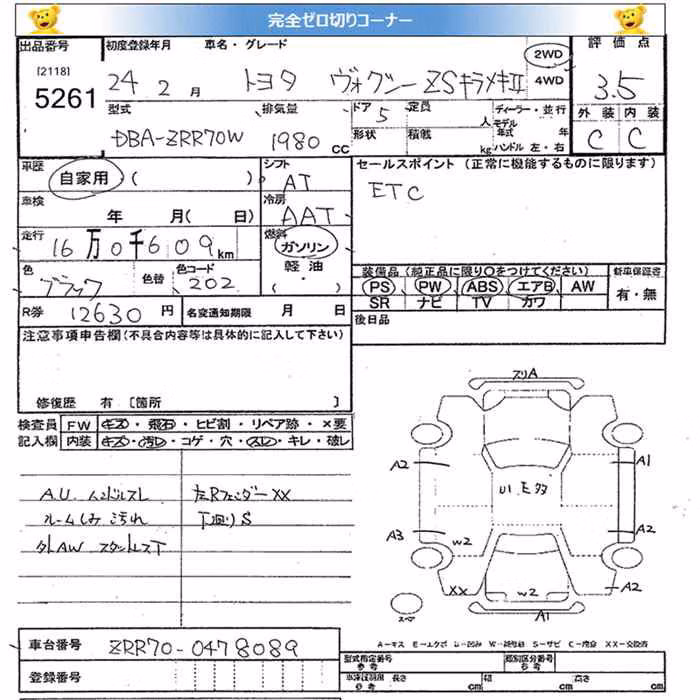 完全ゼロ切りコーナー
出品番号 初度登録年月 車名・グレード 評価点
[2118] 5261 24 2月 トヨタ ヴォクシー ZSキラメキⅡ 2WD 4WD 3.5
型式 排気量 ドア 5 定員 人 ディーラー・並行 外装 内装
DBA-ZRR70W 1980 CC 形状 積載 kg モデル年式 年 ハンドル 左・右 C C
車歴 自家用 ( ) シフト AT セールスポイント (正常に機能するものに限ります)
車検 年 月( 日) 冷房 AAT ETC
走行 16万0千609km 燃料 ガソリン 軽油 ( ・ )
色 ブラック 色替 色コード 202
装備品 (純正品に限り○をつけてください) 新車保証書
PS PW ABS エアB AW 有・無
SR ナビ TV カワ
R券 12630円 名変通知期限 月 日 後日品
注意事項申告欄 (不具合内容等は具体的に記入して下さい)
修復歴 有 [箇所 ]
検査員 FW キズ・飛石・ヒビ割・リペア跡・×要
記入欄 内装 キズ・汚レ・コゲ・穴・スレ・キレ・破レ
A.U. ハンドルスレ
ルームしみ汚れ
XX
下回りS
スリA
A2 A1
A3 W2 A2
XX W2 A2
A1
スペア
A-キズ E-エクボ U-凹み S-サビ XX-交換済
車台番号 ZRR70-0478089
登録番号
型式指定番号 参考 類別区分番号 参考
参考 長さ cm 幅 cm 高さ cm